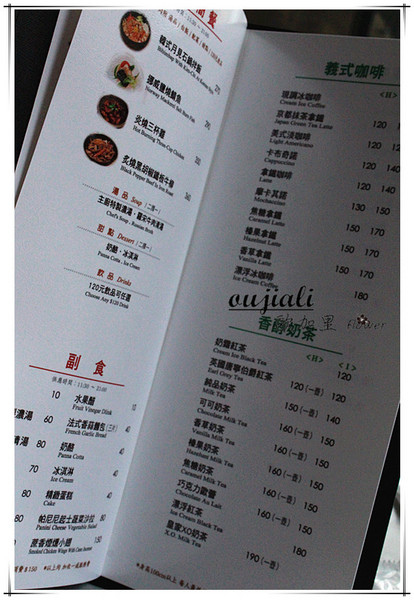 間餐
韓式月見石鍋拌飯
Bibimbap With Kim Chi At Korean Style
270
挪威鹽燒鯖魚
Norway Mackerel Salt Burn Fish
290
炙燒三杯雞
Hot Burning Three-Cup Chicken
炙燒黑胡椒鐵板牛柳
Black Pepper Beef In Iron Roast
湯品 Soup (二擇一)
主廚特製濃湯、羅宋牛肉清湯
Chef's Soup . Russian Broth
甜點 Dessert (二擇一)
奶酪、冰淇淋
Panna Cotta . Ice Cream
飲品 Drinks
120元飲品可任選
Choose Any $120 Drink
副食
供應時間:11:30 ~ 21:00
10 水果醋
Fruit Vinegar Drink
濃湯 60 法式香蒜麵包(三片)
French Garlic Bread
40
清湯 80 奶酪
Panna Cotta
40
70 冰淇淋
Ice Cream
60 精緻蛋糕
Cake
80 帕尼尼起士蔬菜沙拉
Panini Cheese Vegetable Salad
蔗香燻雞小腿
費$150 *以上均加收一成服務費
義式咖啡
<H>
現調冰咖啡
Cream Ice Coffee
京都抹茶拿鐵
Japan Green Tea Latte
120
美式淡咖啡
Light Americano
120 120
卡布奇諾
Cappuccino
120 140
拿鐵咖啡
Latte
120 140
摩卡其諾
Mochaccino
130 150
焦糖拿鐵
Caramel Latte
150 170
榛果拿鐵
Hazelnut Latte
150 170
香草拿鐵
Vanilla Latte
150 170
漂浮冰咖啡
Ice Cream Coffee
180
oujiali
歐加里 flower
香醇奶茶
<H> <I>
奶霜紅茶
Cream Ice Black Tea
120
英國唐寧伯爵紅茶
Earl Grey Tea
120(一壺) 120
純品奶茶
Milk Tea
150(一壺) 140
可可奶茶
Chocolate Milk Tea
160(一壺) 150
香草奶茶
Vanilla Milk Tea
160(一壺) 150
榛果奶茶
Hazelnut Milk Tea
160(一壺) 150
焦糖奶茶
Caramel Milk Tea
160(一壺) 150
巧克力歐蕾
Chocolate Au Lait
160(一壺) 150
漂浮紅茶
Ice Cream Black Tea
180
皇家XO奶茶
X.O. Milk Tea
190(一壺)
*身高100cm以上 每人最